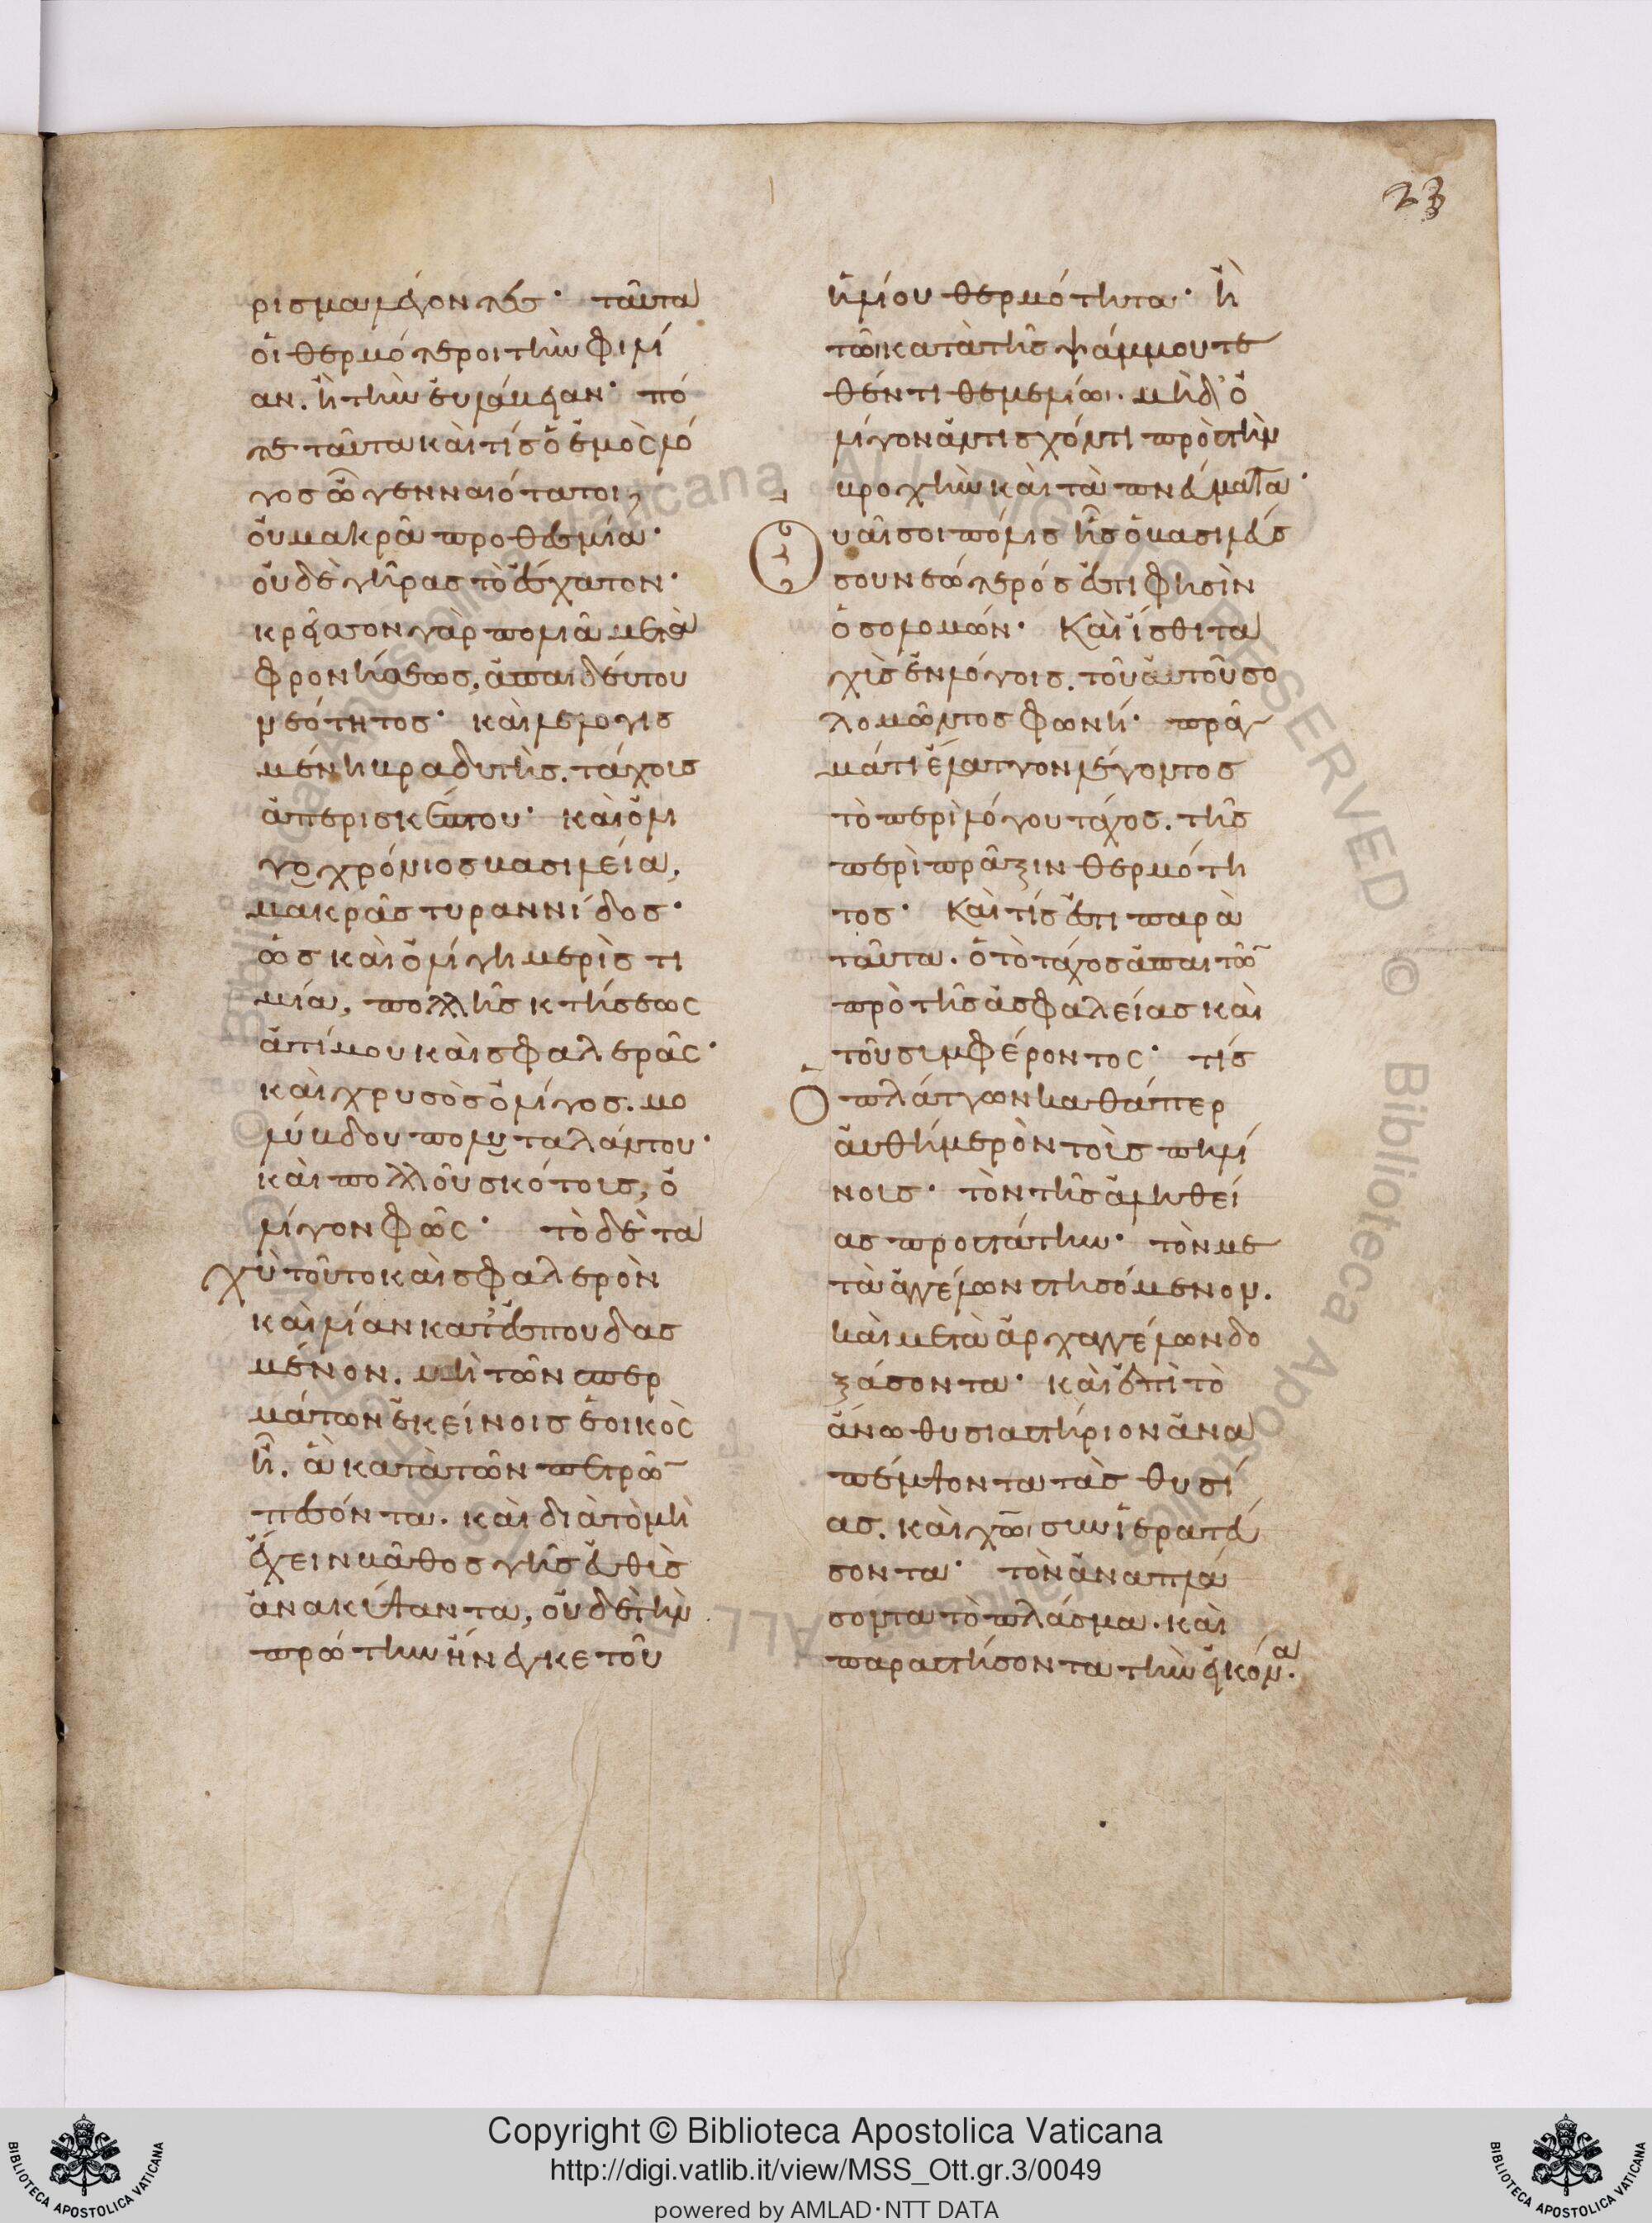 ρισμα λέγοντες· ταῦτα
οἱ θερμότεροι τὴν φιλί
αν. ἢ τὴν εὐλάβειαν· πό
τε ταῦτα καὶ τίς ὁ ἐμὸς λό
γος ὦ γενναιότατοι,
οὐ μακρὰ προθεσμία·
οὐδὲ γῆρας τὸ ἔσχατον·
κρεῖσσον γὰρ πολιὰ μετὰ
φρονήσεως, ἀπαιδεύτου
νεότητος· καὶ λελογισ
μένη βραδυτής. τάχους
ἀπερισκέπτου· καὶ ὀλι
γοχρόνιος βασιλεία,
μακρᾶς τυραννίδος·
ὡς καὶ ὀλίγη μερὶς τι
μία, πολλῆς κτήσεως
ἀτίμου καὶ σφαλερᾶς·
καὶ χρυσὸς ὀλίγος. μο
λύβδου πολυταλάντου·
καὶ πολλοῦ σκότους, ὀ
λίγον φῶς· τὸ δὲ τα
χὺ τοῦτο καὶ σφαλερὸν
καὶ λίαν κατεσπουδασ
μένον. μὴ τῶν σπερ
μάτων ἐκείνοις ἐοικὸς
ἦ. ἃ κατὰ τῶν πετρῶ
πεσόντα. καὶ διὰ τὸ μὴ
ἔχειν βάθος γῆς εὐθὺς
ἀνακύψαντα, οὐδὲ τὴν
πρώτην ἤνεγκε τοῦ
ἡλίου θερμότητα· ἢ
τῶι κατὰ τῆς ψάμμου τε
θέντι θεμελίωι. μὴδ' ὀ
λίγον ἀντισχόντι πρὸς τὴν
βροχὴν καὶ τὰ πνεύματα·
Οὐαί σοι πόλις ἧς ὁ βασιλεύς
σου νεώτερός ἐστι φησὶν
ὁ σολομών· Καὶ ἴσθι τα
χὺς ἐν λόγοις. τοῦ αὐτοῦ σο
λομῶντος φωνή· πρᾶγ
μά τι ἔλαττον λέγοντος
τὸ περὶ λόγου τάχος. τῆς
περὶ πρᾶξιν θερμότη
τος· Καὶ τίς ἐστι παρὰ
ταῦτα. ὁ τὸ τάχος ἀπαιτῶ
πρὸ τῆς ἀσφαλείας καὶ
τοῦ συμφέροντος· τίς
Ὁ πλάττων καθάπερ
αὐθήμερὸν τοῖς πηλί
νοις· τὸν τῆς ἀληθεί
ας προστάτην· τὸν με
τὰ ἀγγέλων στησόμενον.
καὶ μετὰ ἀρχαγγέλων δο
ξάσοντα· καὶ ἐπὶ τὸ
ἄνω θυσιαστήριον ἀνα
πέμψοντα τὰς θυσί
ας. καὶ χῶ συνιερατεύ
σοντα· τὸν ἀναπλά
σοντα τὸ πλάσμα. καὶ
παραστήσοντα τὴν εἰκόνα.
23
Copyright © Biblioteca Apostolica Vaticana
http://digi.vatlib.it/view/MSS_Ott.gr.3/0049
powered by AMLAD·NTT DATA
BIBLIOTECA APOSTOLICA VATICANA
BIBLIOTECA APOSTOLICA VATICANA